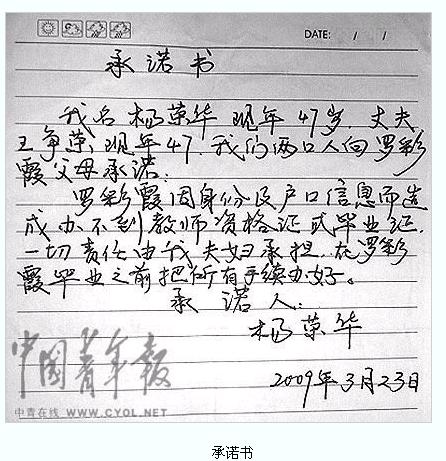 DATE: / /
承诺书
我名杨荣华 现年47岁，丈夫
王争荣，现年47，我们两口人向罗彩
霞父母承诺：
罗彩霞因身份及户口信息而造
成办不到教师资格证或毕业证，
一切责任由我夫妇承担，在罗彩
霞毕业之前把所有手续办好。
承诺人：
杨荣华
2009年3月23日
中国青年报
中青在线 WWW.CYOL.NET
承诺书